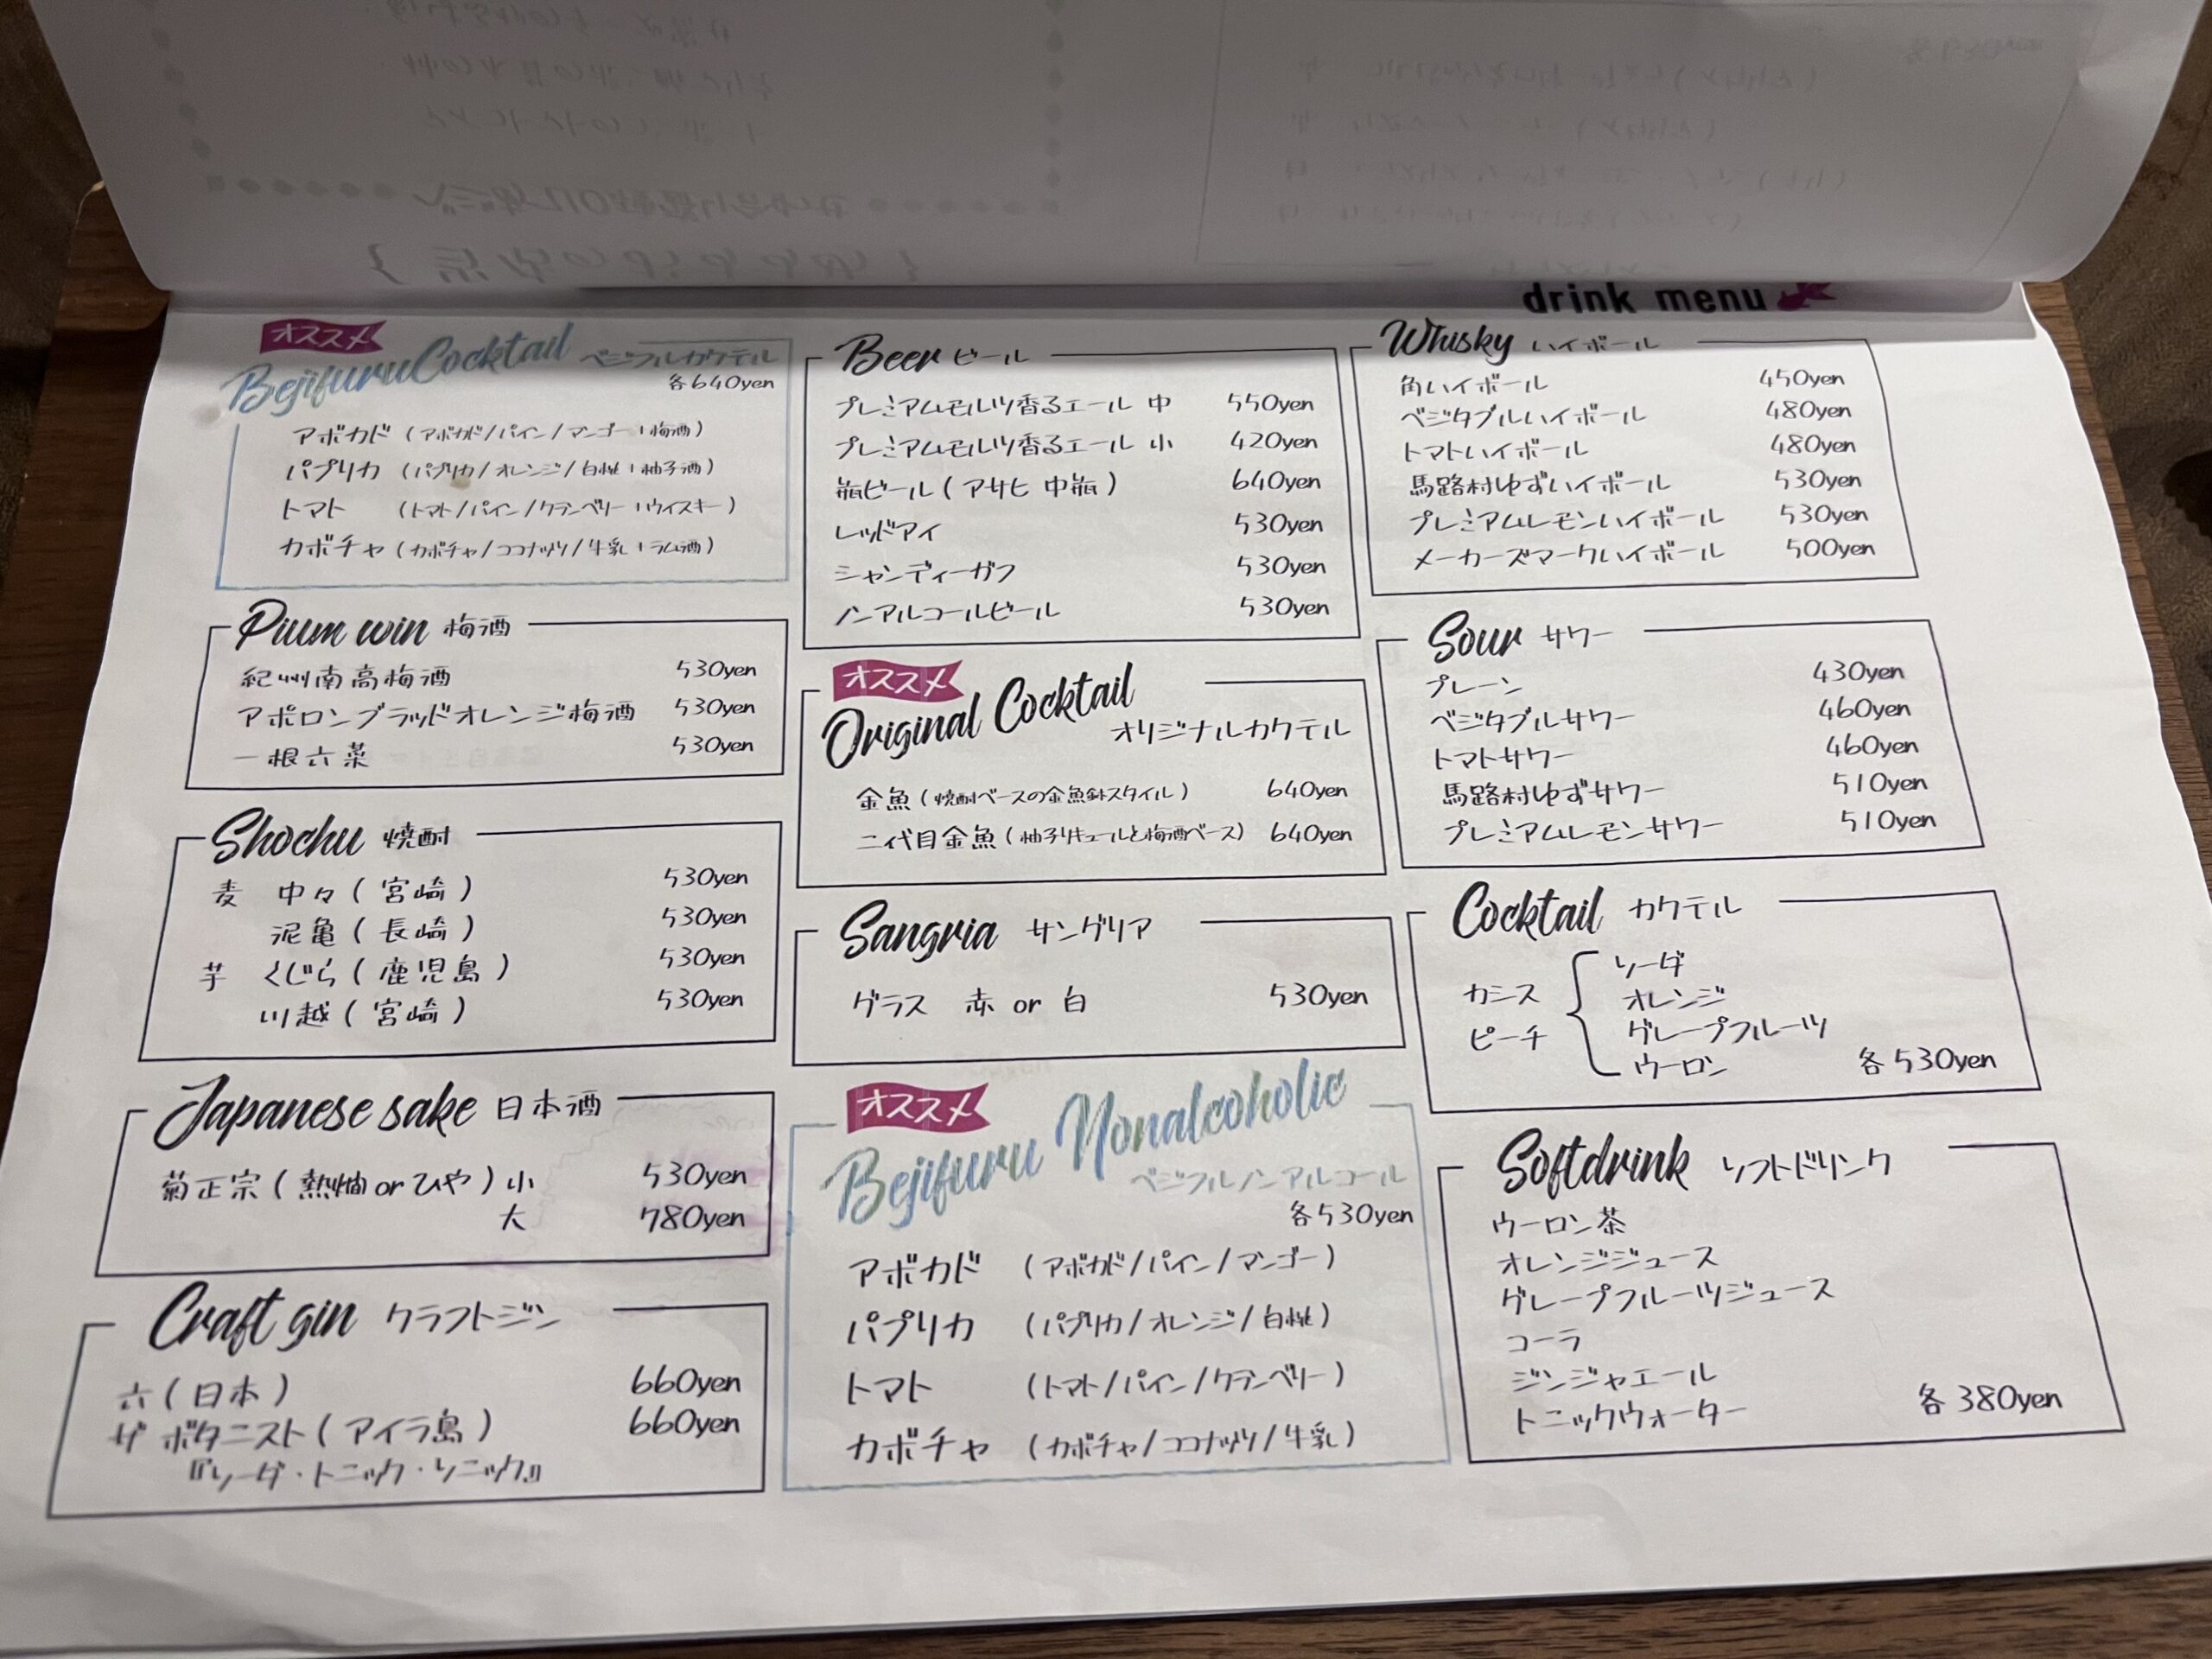 drink menu
オススメ
Bejifuru Cocktail ベジフルカクテル
各640yen
アボカド (アボカド/パイン/マンゴー+梅酒)
パプリカ (パプリカ/オレンジ/白桃+柚子酒)
トマト (トマト/パイン/クランベリー+ウイスキー)
カボチャ (カボチャ/ココナッツ/牛乳+ラム酒)
Plum win 梅酒
紀州南高梅酒 530yen
アポロンブラッドオレンジ梅酒 530yen
一根六菜 530yen
Shochu 焼酎
麦 中々(宮崎) 530yen
泥亀(長崎) 530yen
芋 くじら(鹿児島) 530yen
川越(宮崎) 530yen
Japanese sake 日本酒
菊正宗(熱燗orひや)小 530yen
大 780yen
Craft gin クラフトジン
六(日本) 660yen
ザ ボタニスト(アイラ島) 660yen
『ソーダ・トニック・ソニック』
Beer ビール
プレミアムモルツ香るエール 中 550yen
プレミアムモルツ香るエール 小 420yen
瓶ビール(アサヒ 中瓶) 640yen
レッドアイ 530yen
シャンディーガフ 530yen
ノンアルコールビール 530yen
オススメ
Original Cocktail
オリジナルカクテル
金魚(焼酎ベースの金魚鉢スタイル) 640yen
二代目金魚(柚子リキュールと梅酒ベース) 640yen
Sangria サングリア
グラス 赤 or 白 530yen
オススメ
Bejifuru Nonalcoholic
ベジフルノンアルコール
各530yen
アボカド (アボカド/パイン/マンゴー)
パプリカ (パプリカ/オレンジ/白桃)
トマト (トマト/パイン/クランベリー)
カボチャ (カボチャ/ココナッツ/牛乳)
Whisky ハイボール
角ハイボール 450yen
ベジタブルハイボール 480yen
トマトハイボール 480yen
馬路村ゆずハイボール 530yen
プレミアムレモンハイボール 530yen
メーカーズマークハイボール 500yen
Sour サワー
プレーン 430yen
ベジタブルサワー 460yen
トマトサワー 460yen
馬路村ゆずサワー 510yen
プレミアムレモンサワー 510yen
Cocktail カクテル
カシス
ピーチ
ソーダ
オレンジ
グレープフルーツ
ウーロン 各530yen
Softdrink ソフトドリンク
ウーロン茶
オレンジジュース
グレープフルーツジュース
コーラ
ジンジャエール
トニックウォーター 各380yen